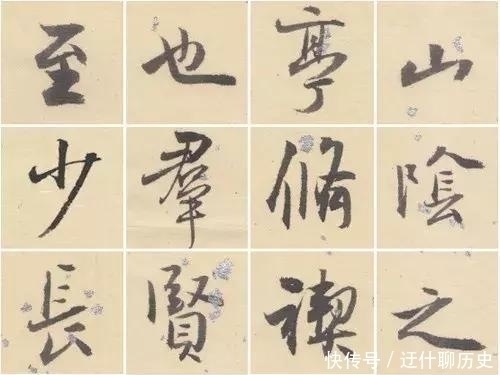 山陰之
亭脩禊
也羣賢
至少長
快传号／迂什聊历史